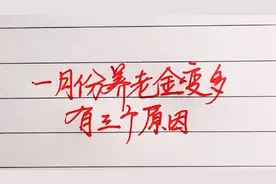 一月份养老金变多
有三个原因